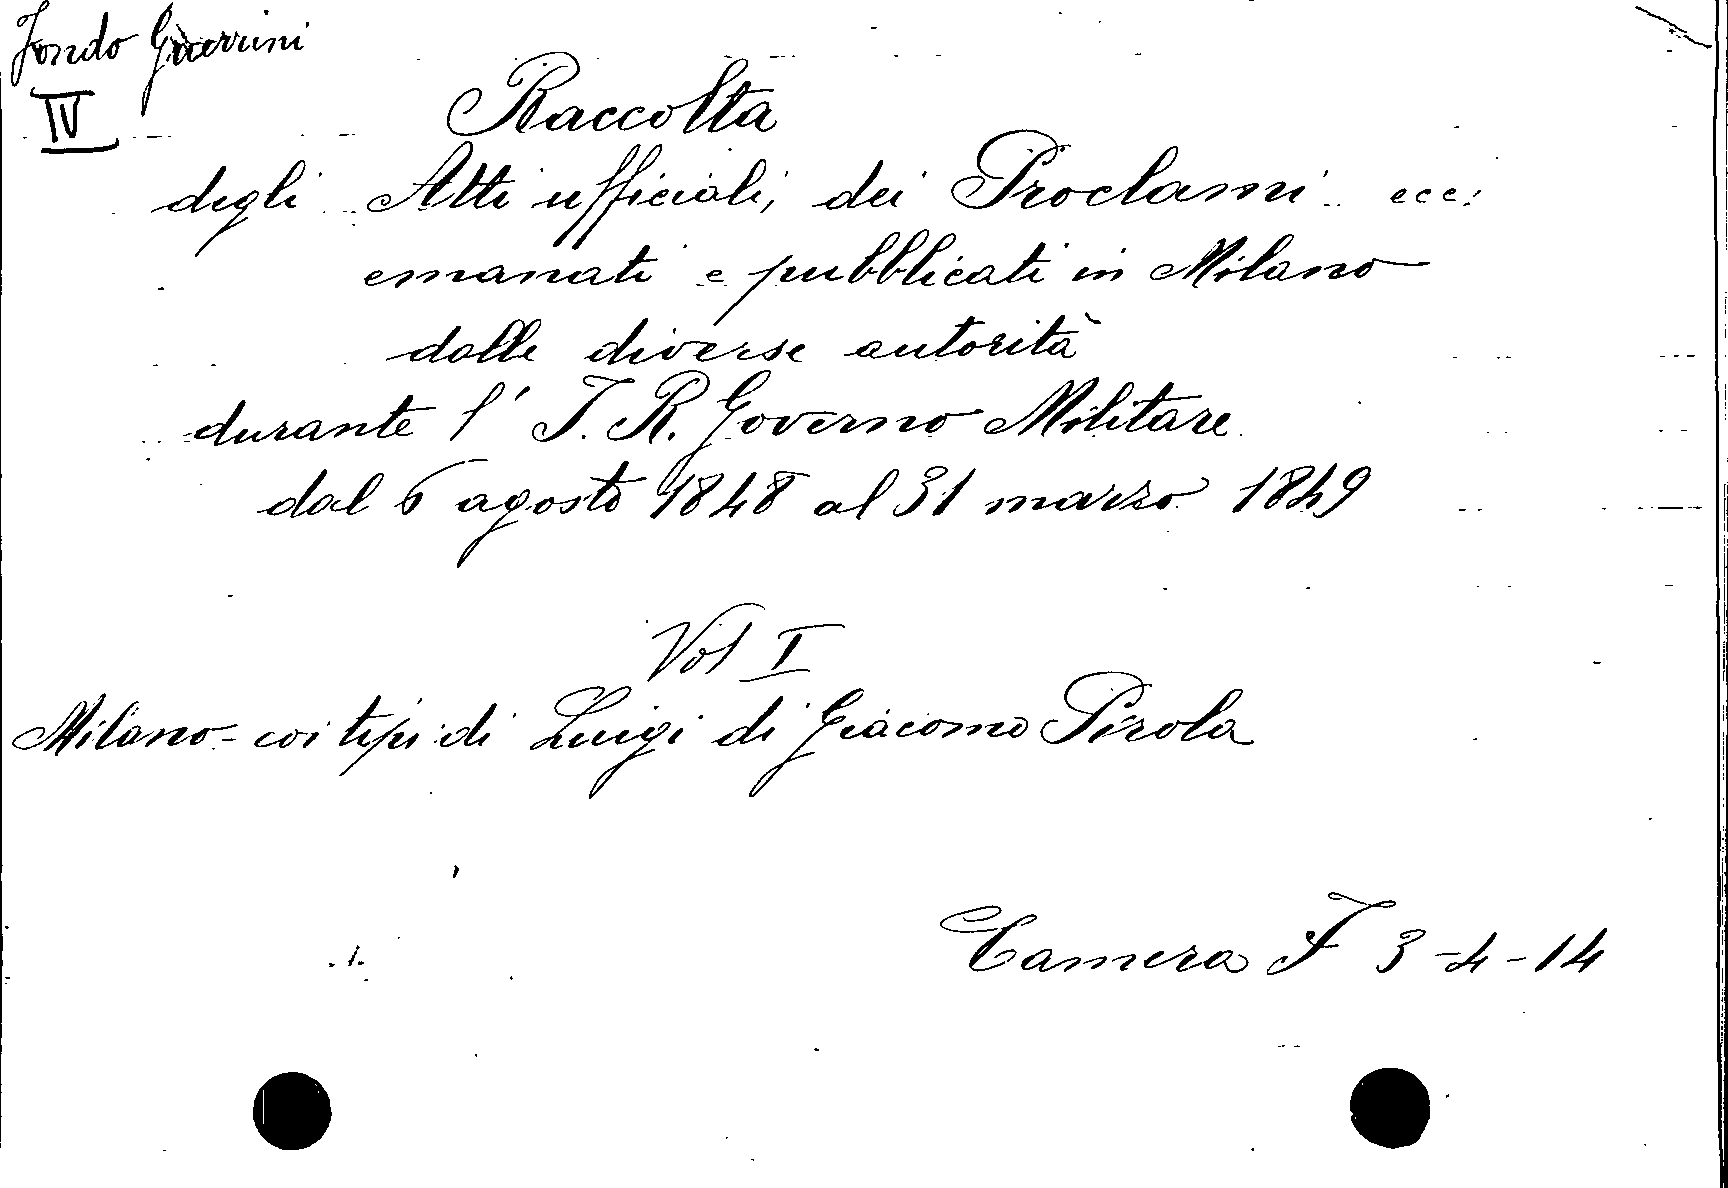 Fondo Guerrini
IV
Raccolta
degli Atti ufficiali, dei Proclami ecc.
emanati e pubblicati in Milano
dalle diverse autorità
durante l' I. R. Governo Militare
dal 6 agosto 1848 al 31 marzo 1849
Vol I
Milano - coi tipi di Luigi di Giacomo Pirola
Camera F 3-4-14